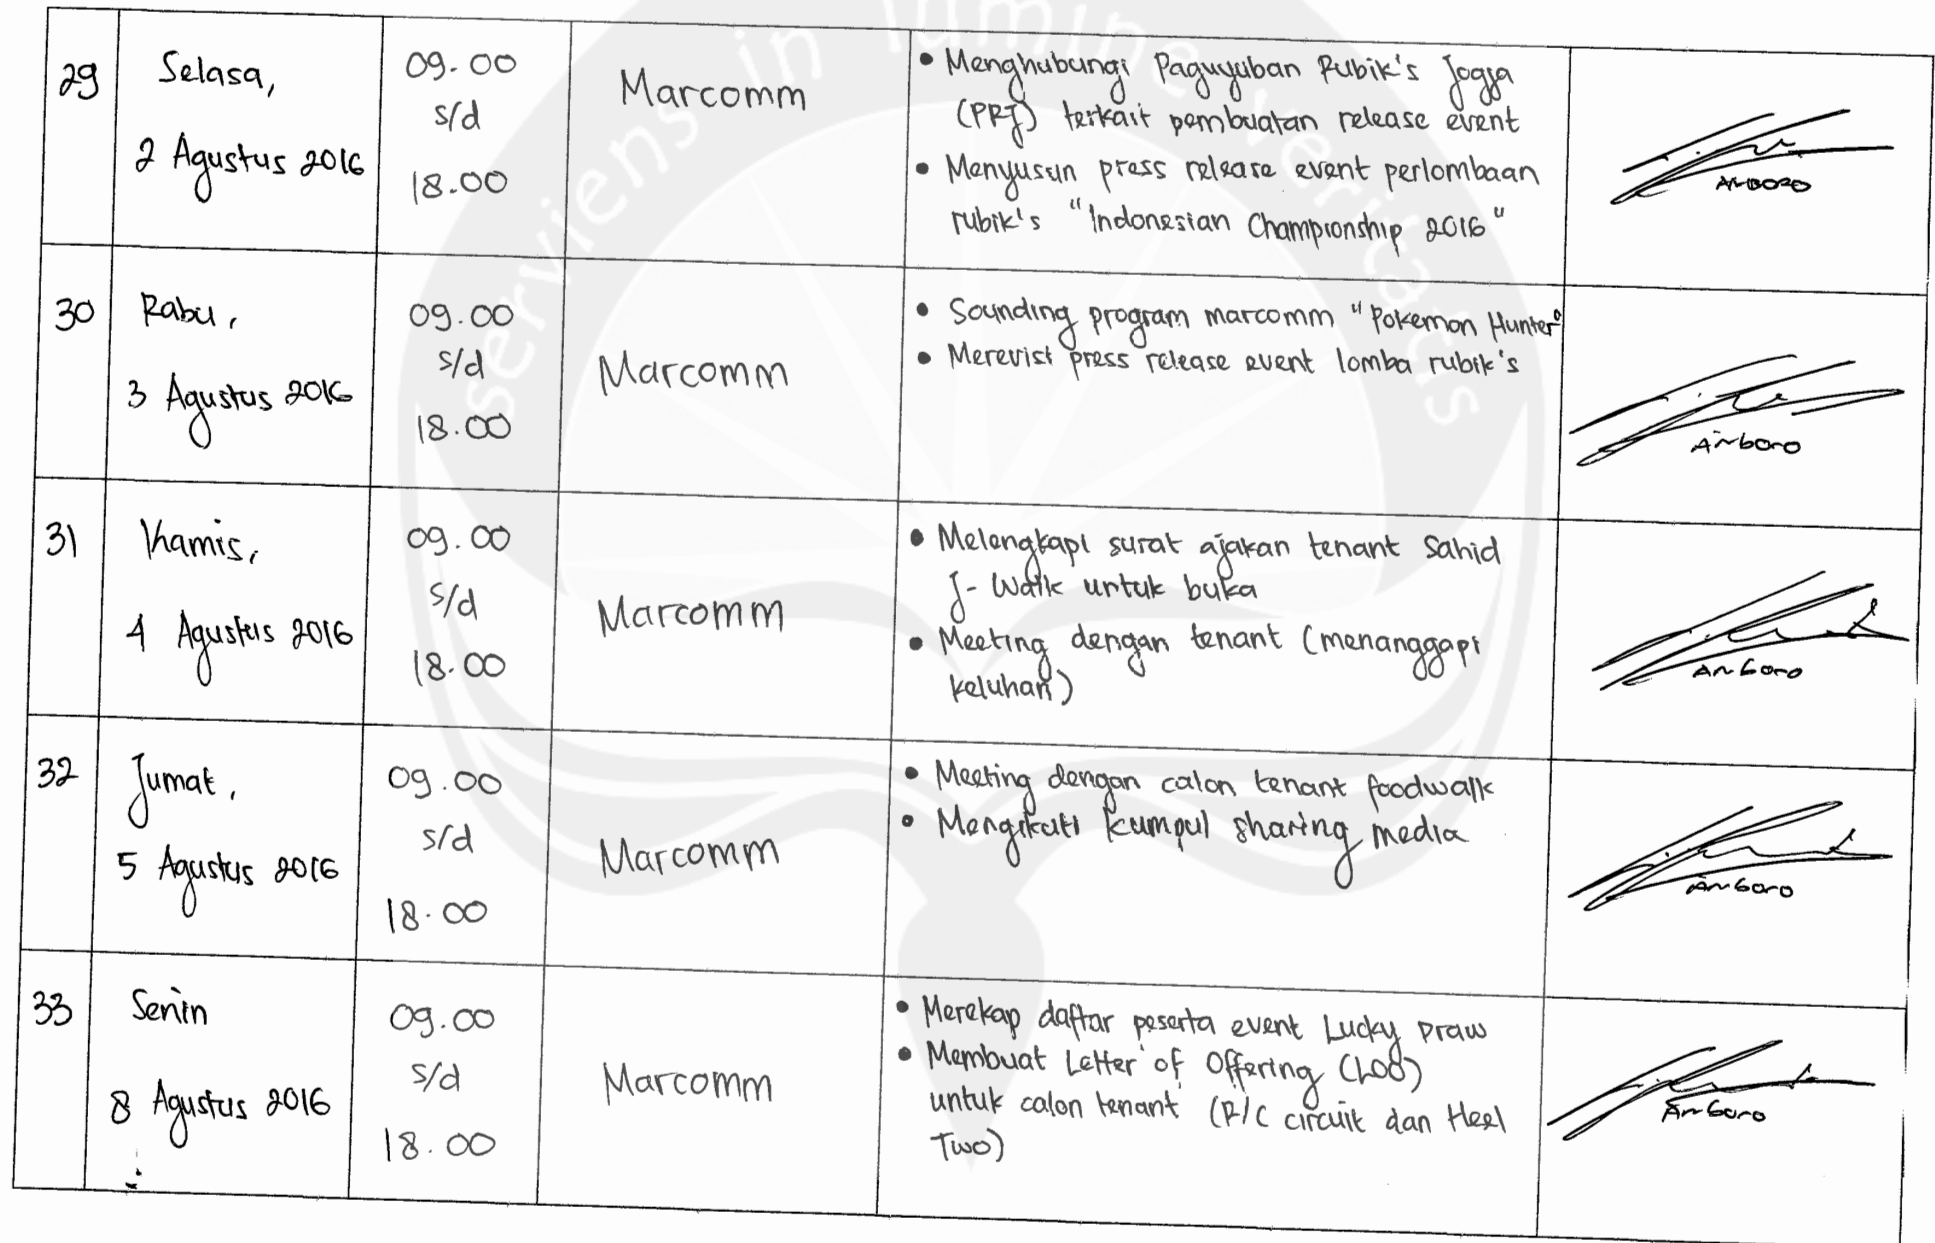 serviens in lumine veritatis
29
Selasa,
2 Agustus 2016
09.00
s/d
18.00
Marcomm
• Menghubungi Paguyuban Rubik's Jogja
(PRJ) terkait pembuatan release event
• Menyusun press release event perlombaan
rubik's "Indonesian Championship 2016"
Anboro
30
Rabu,
3 Agustus 2016
09.00
s/d
18.00
Marcomm
• Sounding program marcomm "Pokemon Hunter"
• Merevisi press release event lomba rubik's
Anboro
31
Kamis,
4 Agustus 2016
09.00
s/d
18.00
Marcomm
• Melengkapi surat ajakan tenant Sahid
J-Walk untuk buka
• Meeting dengan tenant (menanggapi
keluhan)
Anboro
32
Jumat,
5 Agustus 2016
09.00
s/d
18.00
Marcomm
• Meeting dengan calon tenant foodwalk
• Mengikuti kumpul sharing media
Anboro
33
Senin
8 Agustus 2016
09.00
s/d
18.00
Marcomm
• Merekap daftar peserta event Lucky Draw
• Membuat Letter of Offering (LOO)
untuk calon tenant (R/C circuit dan Heel
Two)
Anboro